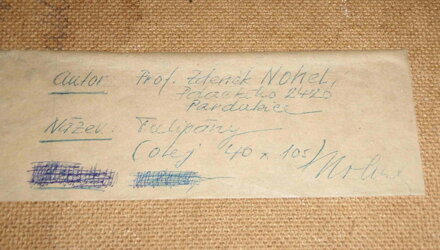 autor Prof. Zdeněk Nohel,
2420
Pardubice
Název: Tulipány
(olej 40 x 105)